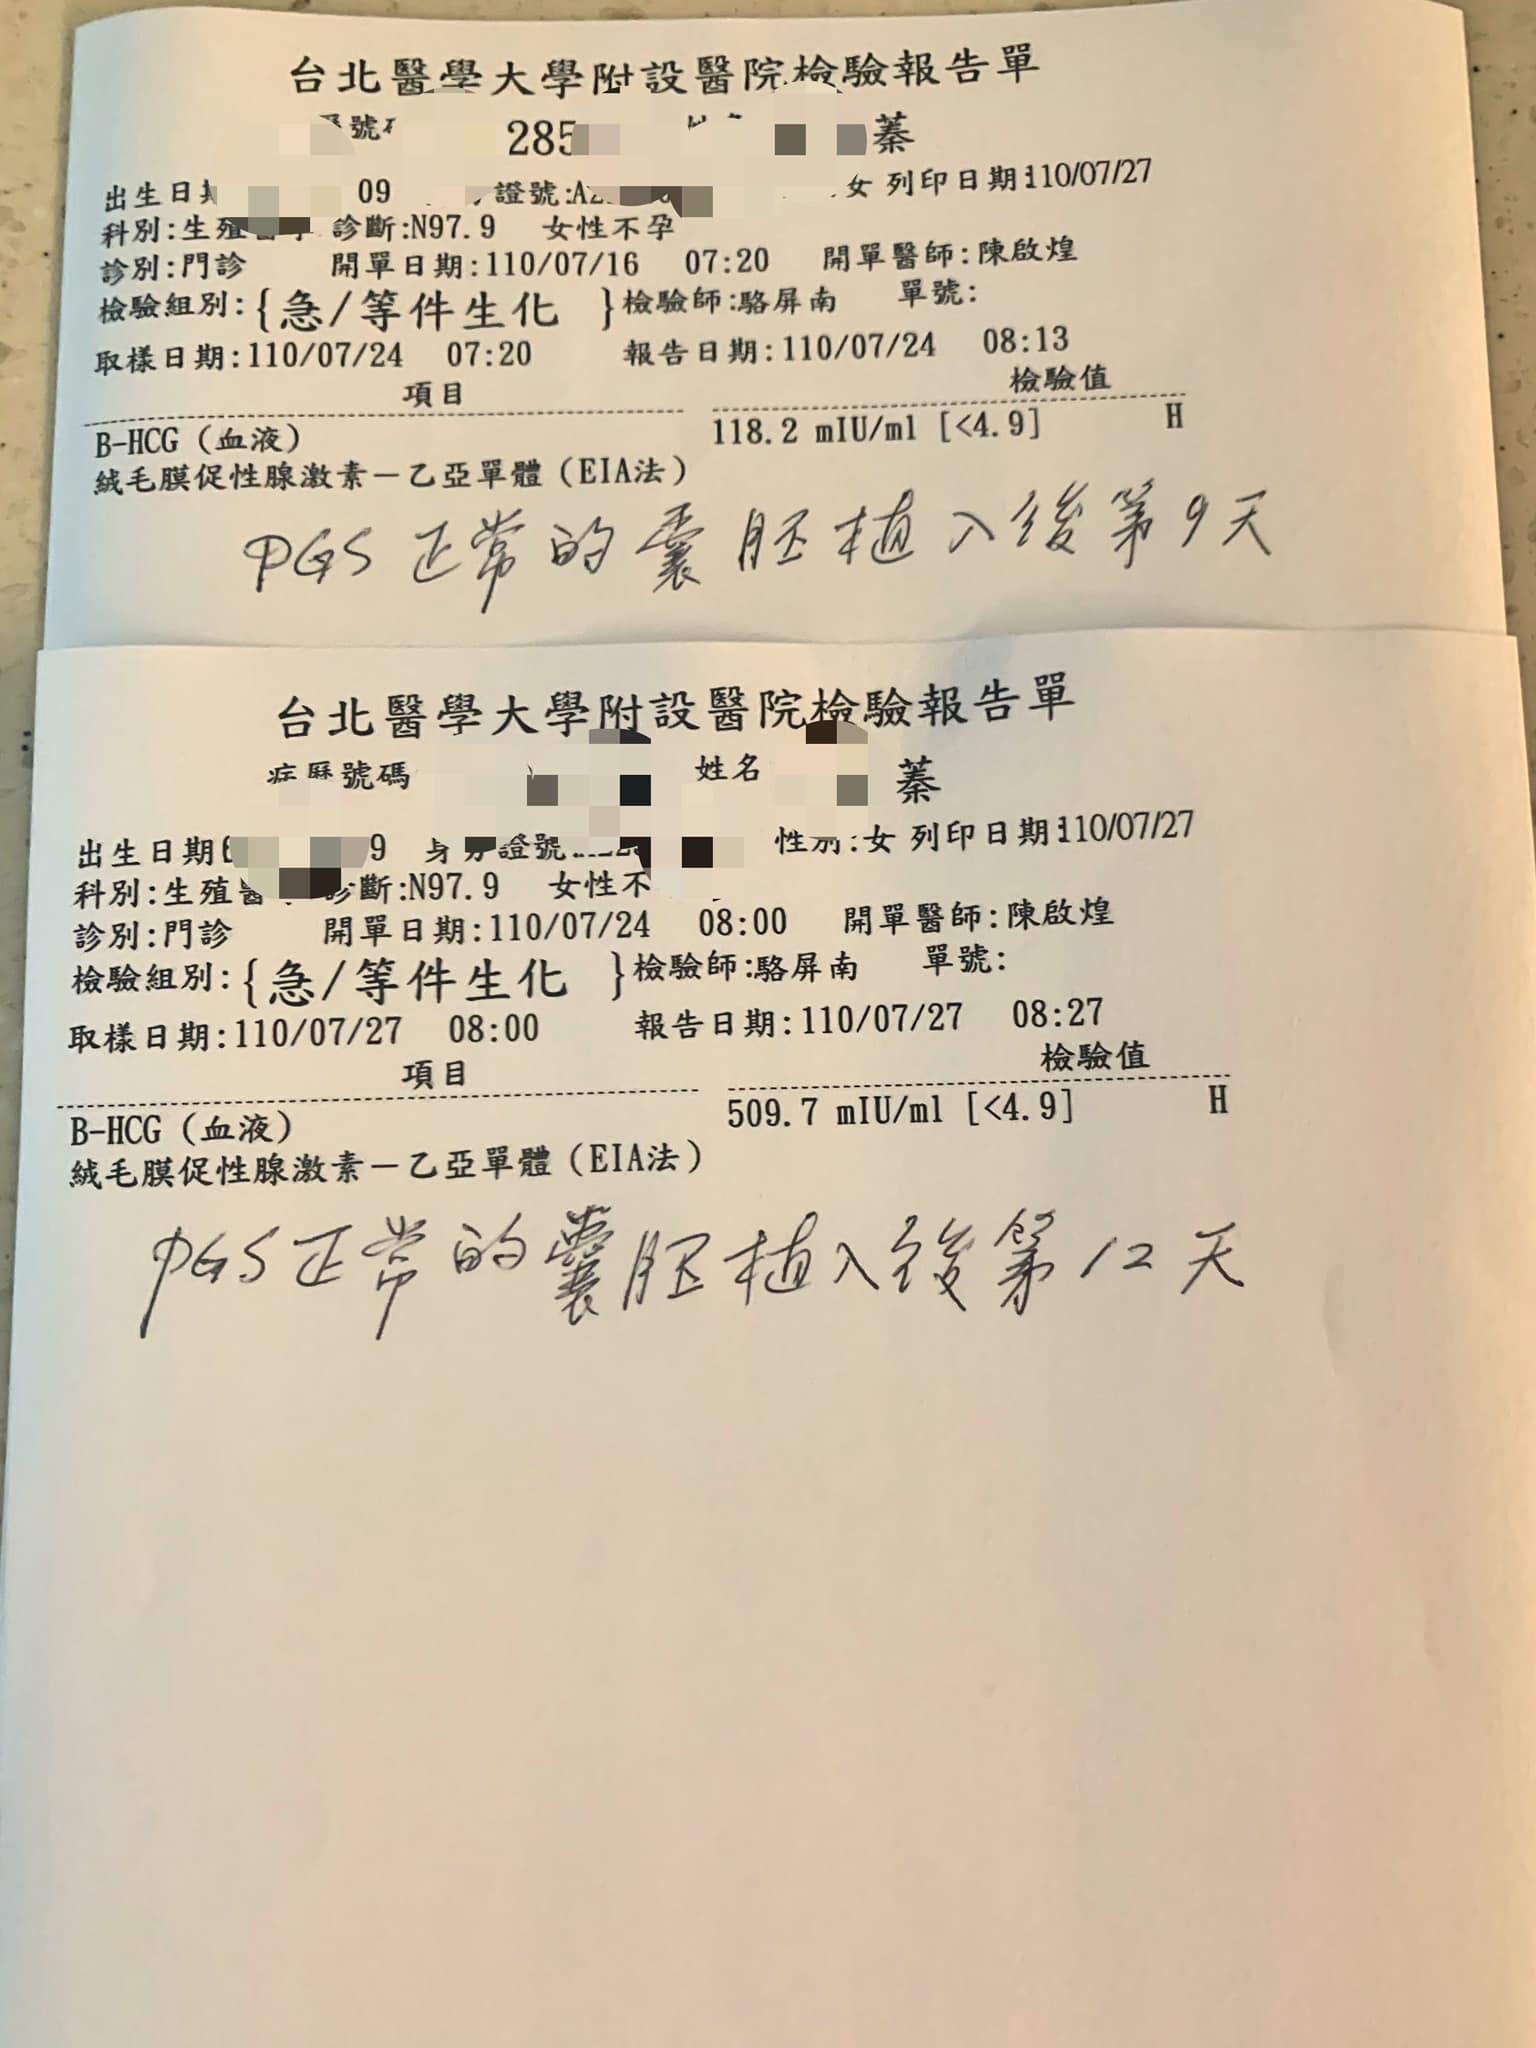 台北醫學大學附設醫院檢驗報告單
號 285 蓁
出生日 09 證號:A2 女 列印日期:110/07/27
科別:生殖 診斷:N97.9 女性不孕
診別:門診 開單日期:110/07/16 07:20 開單醫師:陳啟煌
檢驗組別:{急/等件生化 }檢驗師:駱屏南 單號:
取樣日期:110/07/24 07:20 報告日期:110/07/24 08:13
項目 檢驗值
B-HCG (血液) 118.2 mIU/ml [<4.9] H
絨毛膜促性腺激素－乙亞單體 (EIA法)
PGS 正常的囊胚植入後第9天
台北醫學大學附設醫院檢驗報告單
病歷號碼 姓名 蓁
出生日期 9 身分證號 性別:女 列印日期:110/07/27
科別:生殖醫 診斷:N97.9 女性不
診別:門診 開單日期:110/07/24 08:00 開單醫師:陳啟煌
檢驗組別:{急/等件生化 }檢驗師:駱屏南 單號:
取樣日期:110/07/27 08:00 報告日期:110/07/27 08:27
項目 檢驗值
B-HCG (血液) 509.7 mIU/ml [<4.9] H
絨毛膜促性腺激素－乙亞單體 (EIA法)
PGS 正常的囊胚植入後第12天